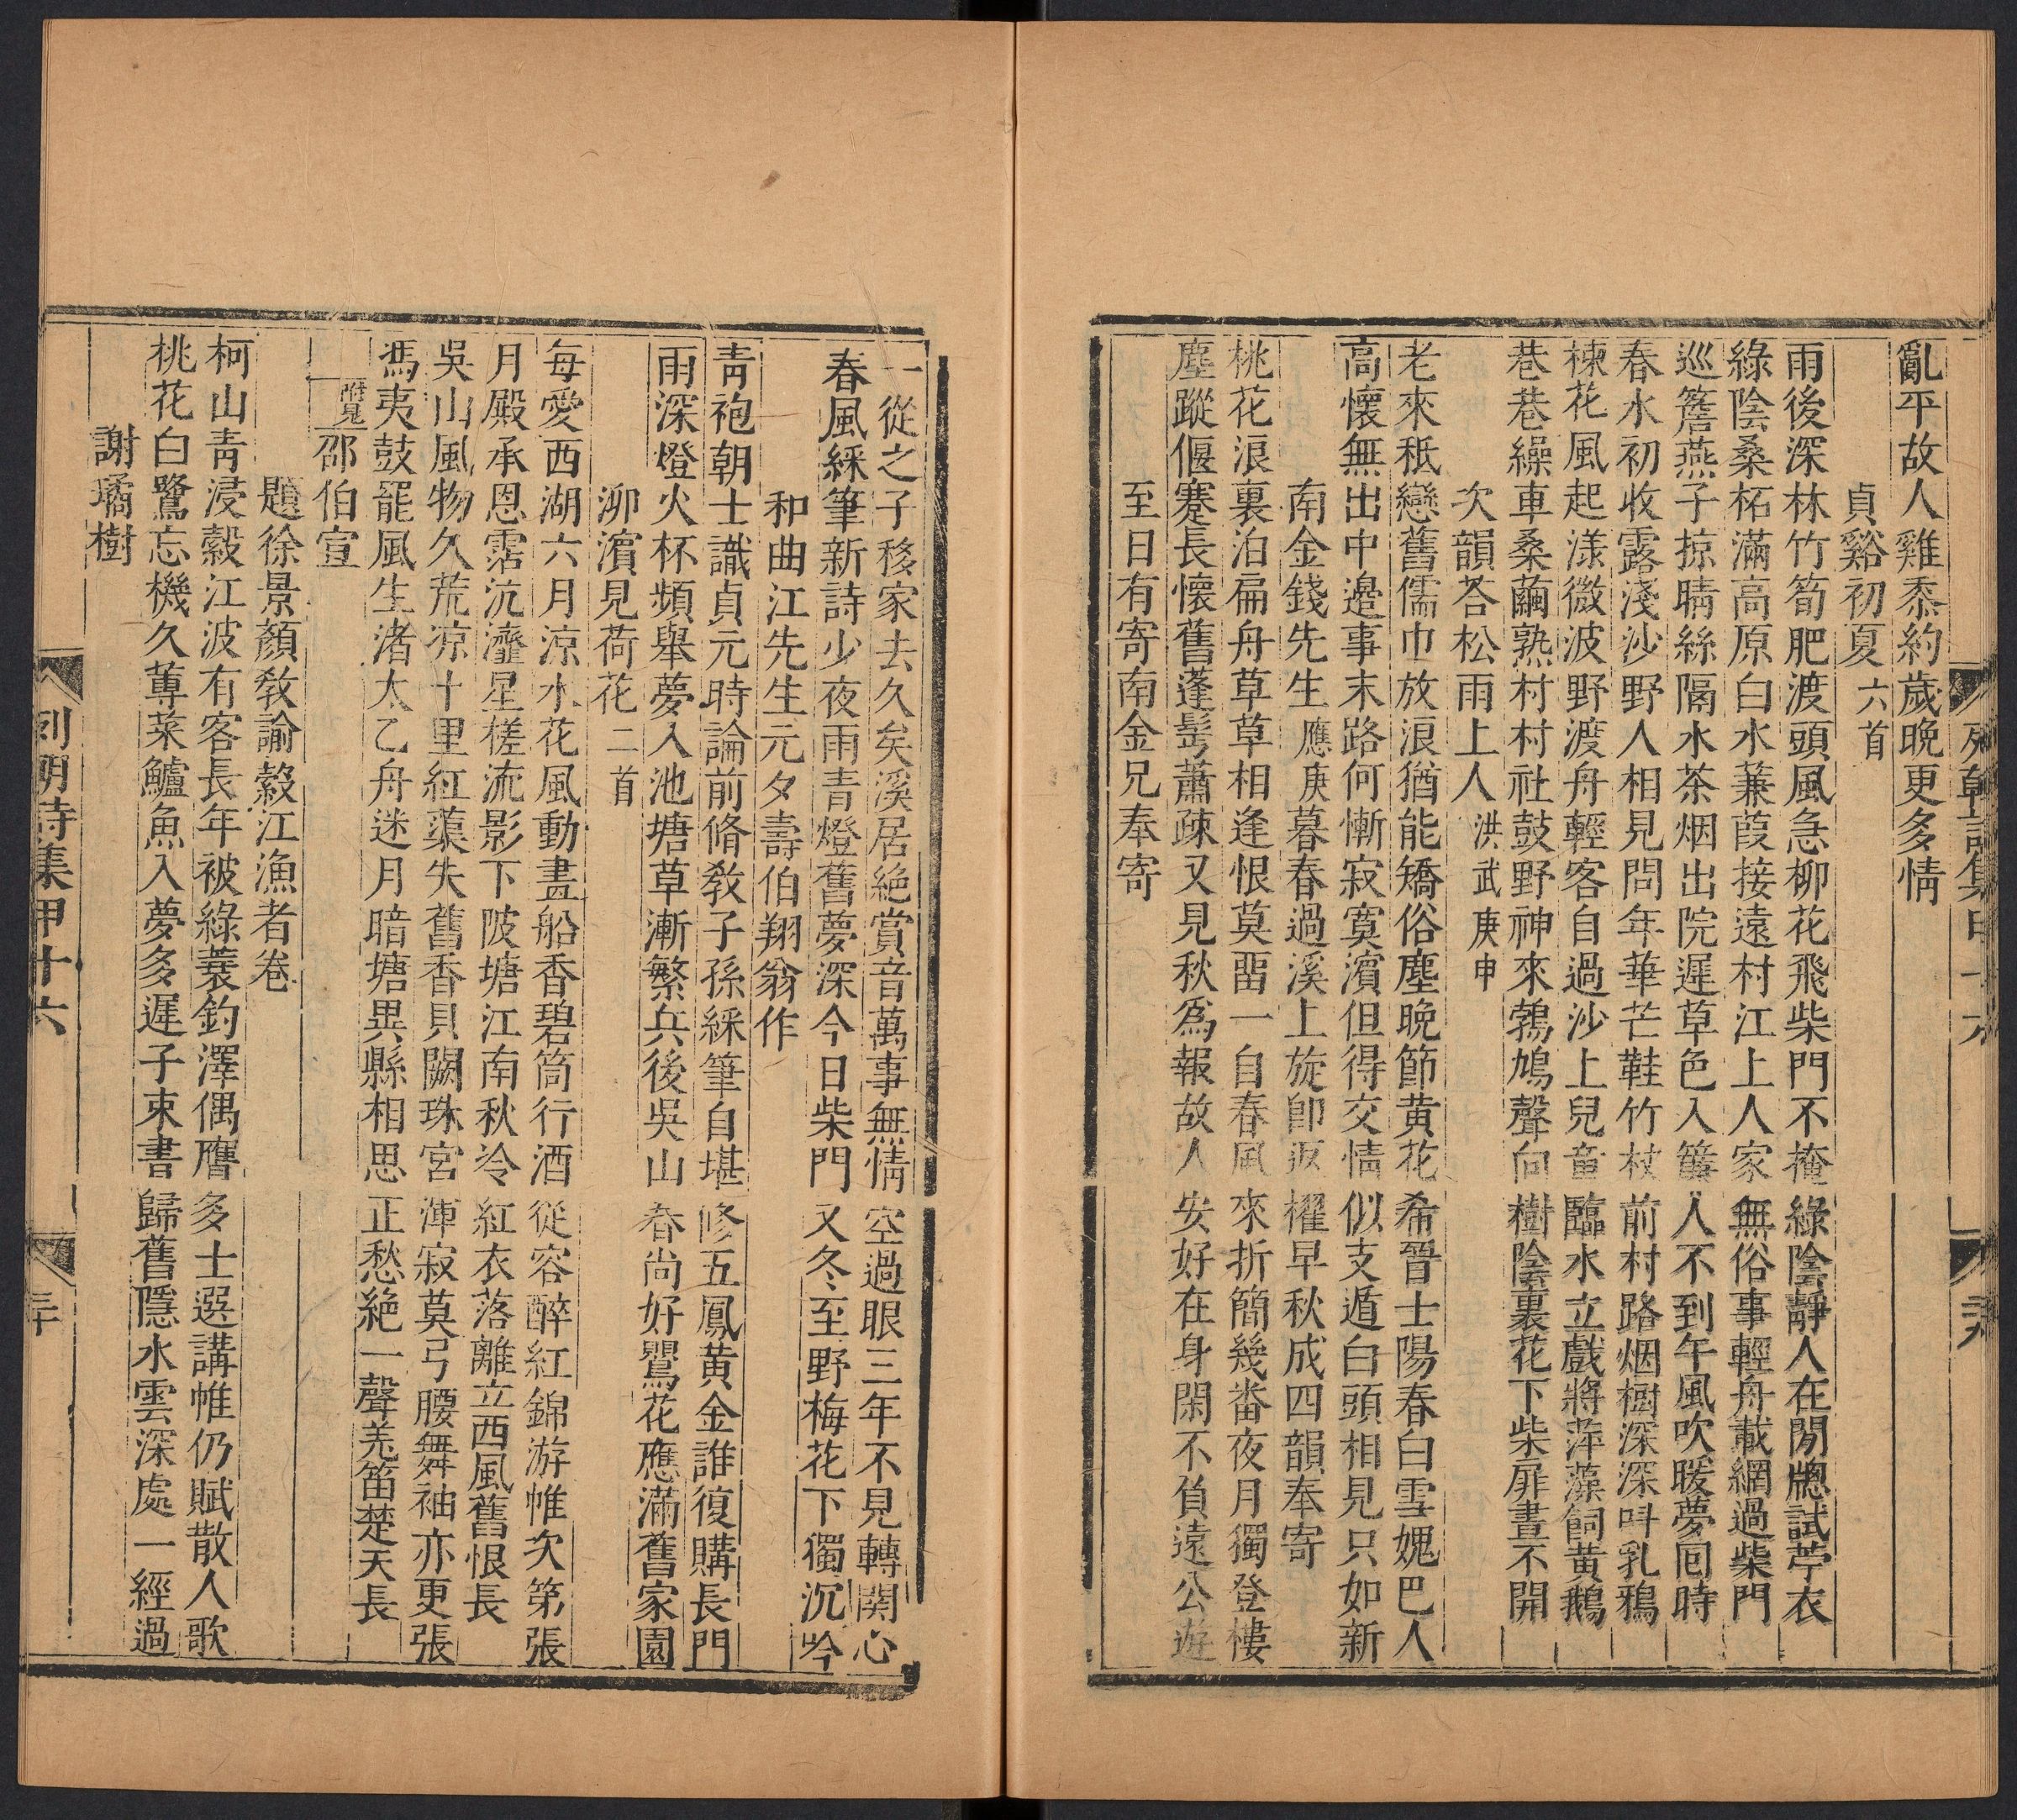 亂平故人雞黍約歲晚更多情
貞谿初夏六首
雨後深林竹筍肥渡頭風急柳花飛柴門不掩綠陰靜人在閒牕試苧衣
綠陰桑柘滿高原白水蒹葭接遠村江上人家無俗事輕舟載網過柴門
巡簷燕子掠睛絲隔水茶烟出院遲草色入簾人不到午風吹暖夢囘時
春水初收露淺沙野人相見問年華芒鞋竹杖前村路烟樹深深呌乳鴉
楝花風起漾微波野渡舟輕客自過沙上兒童臨水立戲將萍藻飼黄鵝
巷巷繰車桑繭熟村村社鼓野神來鵓鳩聲向樹陰裏花下柴扉晝不開
次韻荅松雨上人洪武庚申
老來秪戀舊儒巾放浪猶能矯俗塵晚節黄花希晉士陽春白雪媿巴人
高懷無出中邊事末路何慚寂寞濵但得交情似支遁白頭相見只如新
南金錢先生應庚暮春過溪上旋卽返櫂早秋成四韻奉寄
桃花浪裏泊扁舟草草相逢恨莫畱一自春風來折簡幾畨夜月獨登樓
塵蹤偃蹇長懷舊蓬髩蕭疎又見秋爲報故人安好在身閑不負遠公遊
至日有寄南金兄奉寄
列朝詩集甲十六
一從之子移家去久矣溪居絶賞音萬事無情空過眼三年不見轉関心
春風綵筆新詩少夜雨青燈舊夢深今日柴門又冬至野梅花下獨沉吟
和曲江先生元夕壽伯翔翁作
靑袍朝士識貞元時論前脩敎子孫綵筆自堪修五鳳黄金誰復購長門
雨深燈火杯頻舉夢入池塘草漸繁兵後吳山春尚好鸎花應滿舊家園
泖濵見荷花二首
每愛西湖六月涼水花風動畫船香碧筩行酒從容醉紅錦游帷次第張
月殿承恩霑沆瀣星槎流影下陂塘江南秋冷紅衣落離立西風舊恨長
吳山風物久荒涼十里紅蕖失舊香貝闕珠宮渾寂莫弓腰舞袖亦更張
馮夷鼓罷風生渚太乙舟迷月暗塘異縣相思正愁絶一聲羌笛楚天長
附見邵伯宣
題徐景顏敎諭縠江漁者卷
柯山靑浸縠江波有客長年被綠蓑釣澤偶膺多士選講帷仍賦散人歌
桃花白鷺忘機久蓴菜鱸魚入夢多遲子束書歸舊隱水雲深處一經過
謝璚樹
列朝詩集甲十六